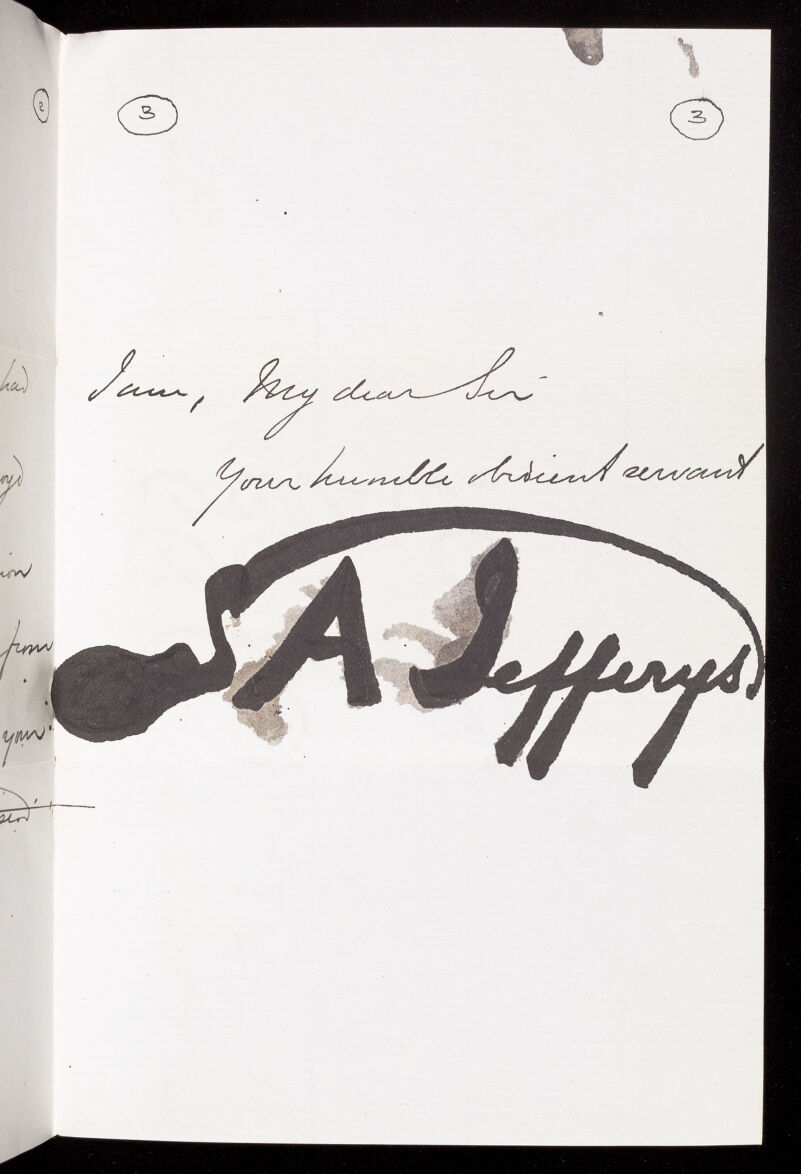 2
3
3
had
oyd
ion
from
your
I am, My dear Sir
Your humble obedient servant
A Jefferys